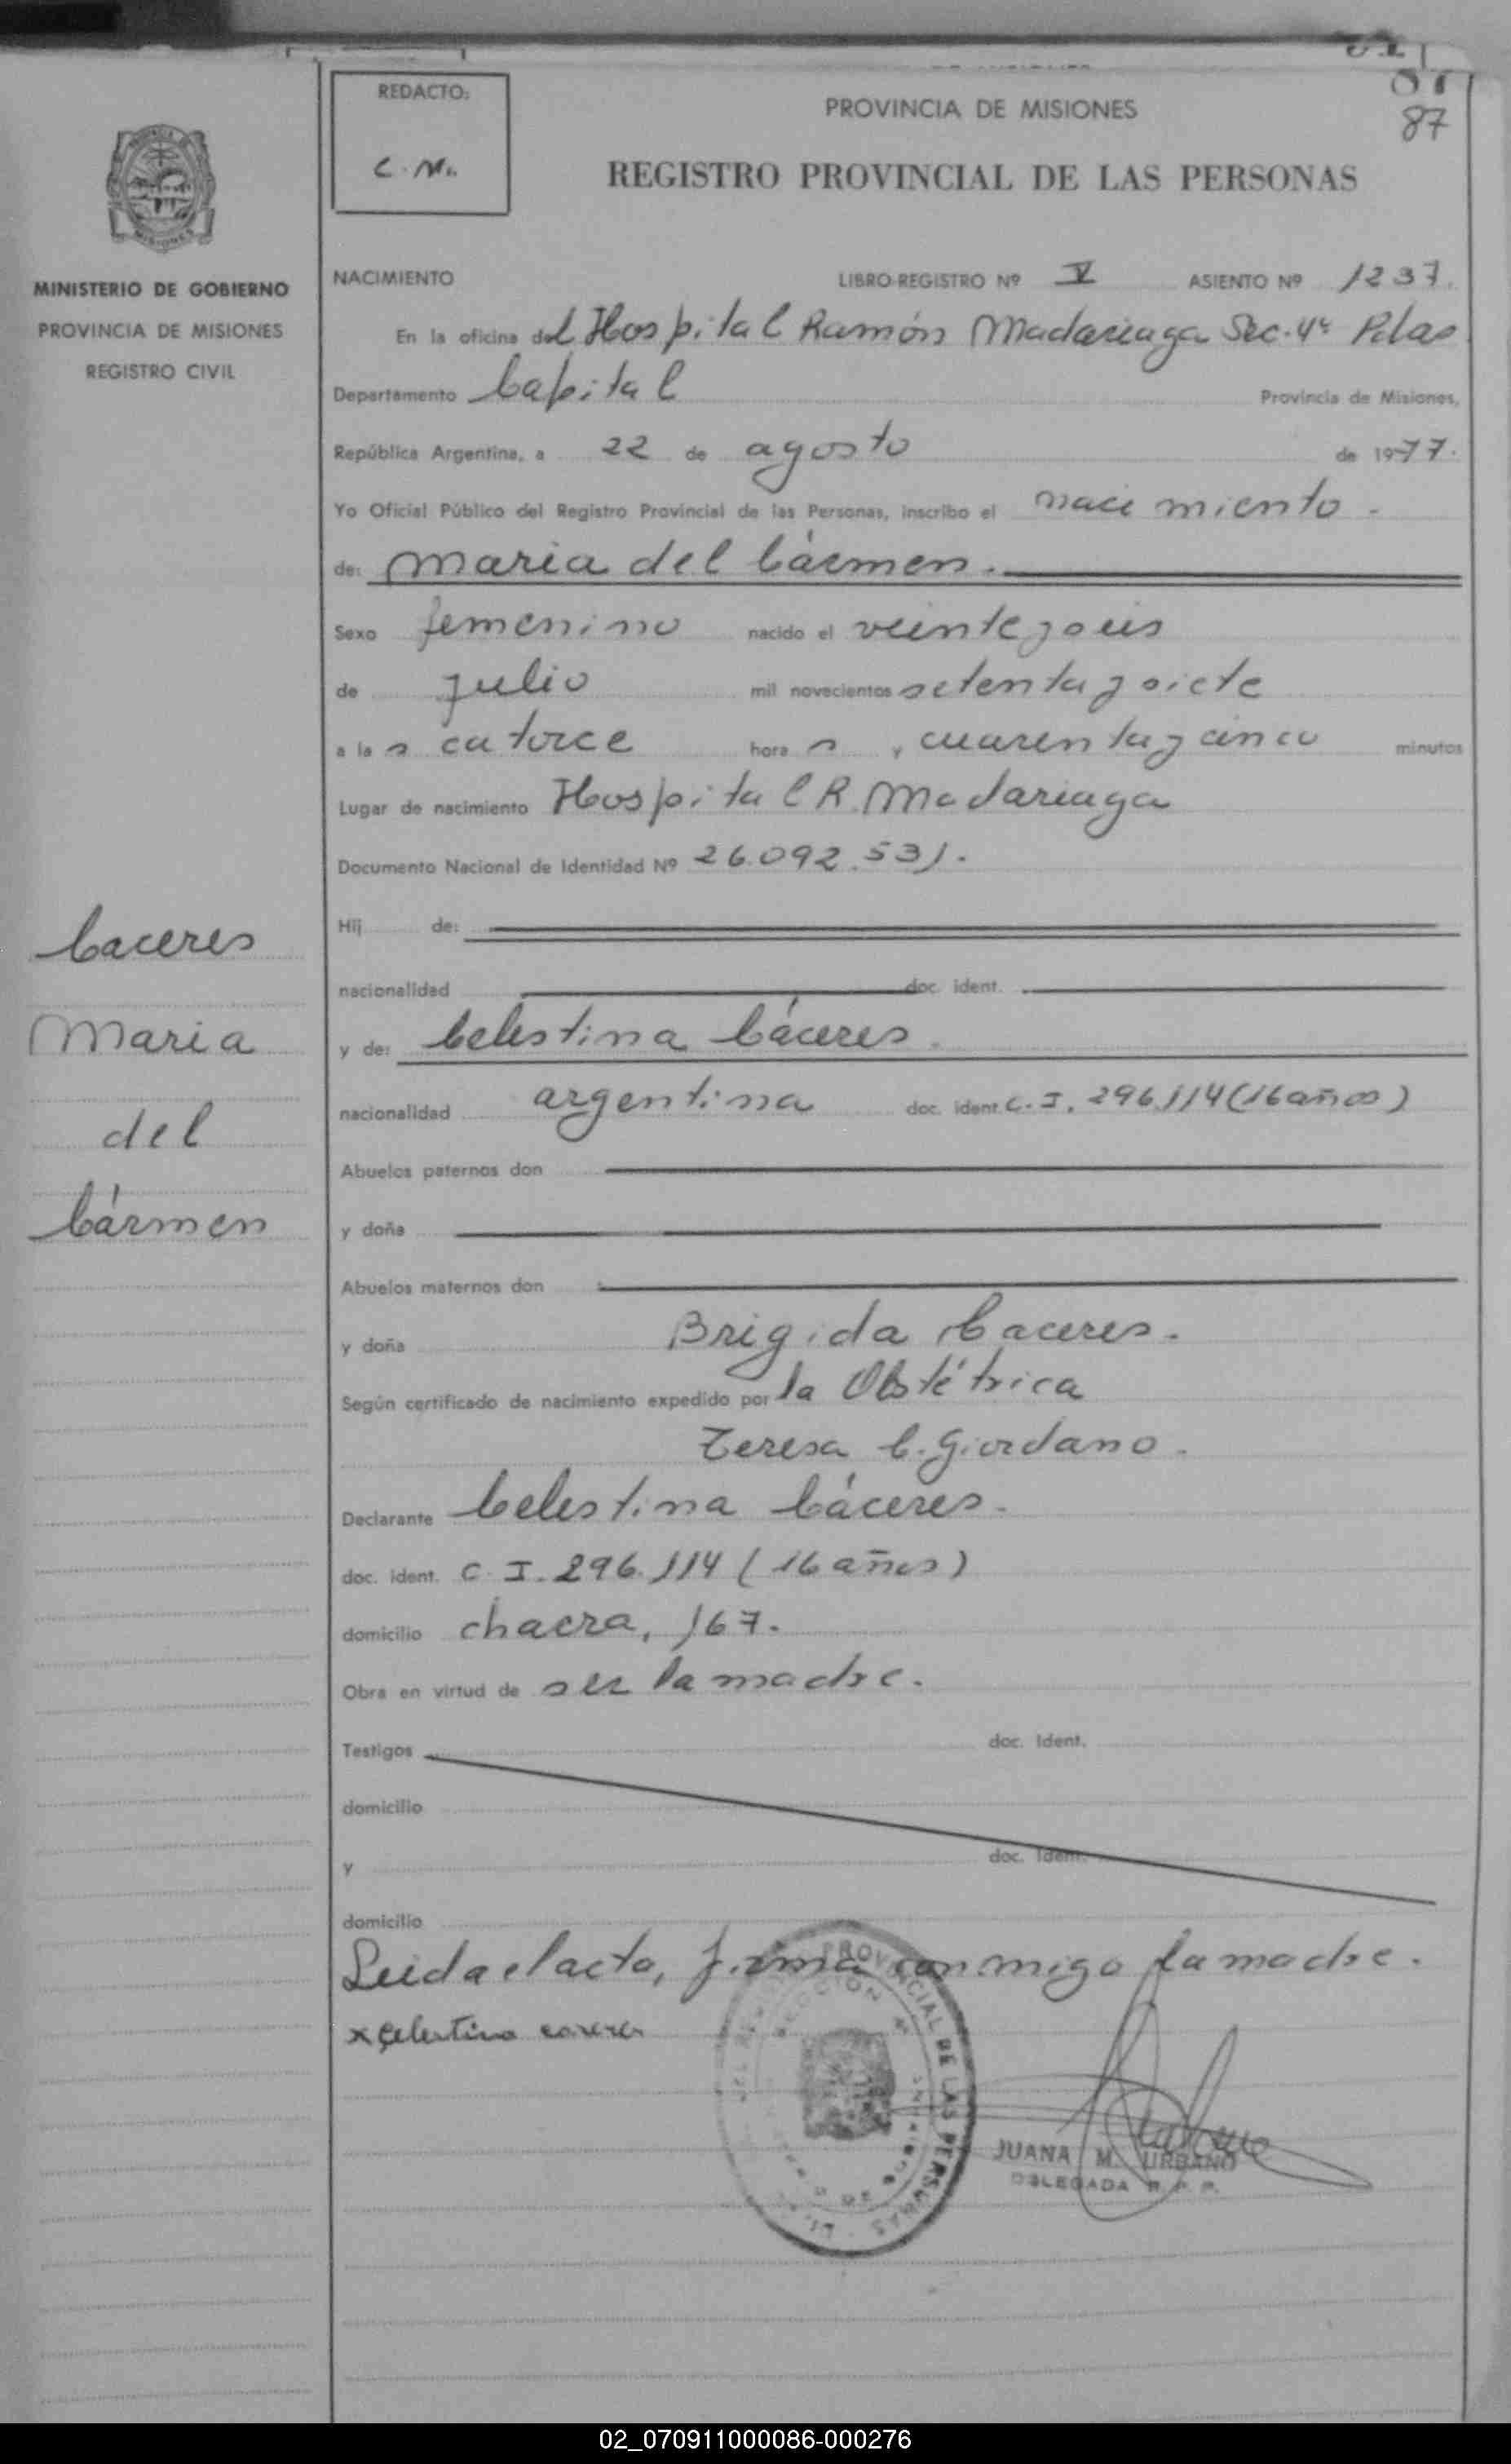 87
REDACTO:
C. M.
PROVINCIA DE MISIONES
REGISTRO PROVINCIAL DE LAS PERSONAS
MISIONES
MINISTERIO DE GOBIERNO
PROVINCIA DE MISIONES
REGISTRO CIVIL
Caceres
Maria
del
Cármen
NACIMIENTO LIBRO-REGISTRO Nº V ASIENTO Nº 1237.
En la oficina del Hospital Ramón Madariaga Sec. 4ª Pdas
Departamento Capital Provincia de Misiones,
República Argentina, a 22 de agosto de 1977.
Yo Oficial Público del Registro Provincial de las Personas, inscribo el nacimiento.
de: Maria del Cármen.
Sexo femenino nacido el veinteyseis
de julio mil novecientos setentaysiete
a las catorce horas y cuarentaycinco minutos
Lugar de nacimiento Hospital R. Madariaga
Documento Nacional de Identidad Nº 26.092.531.
Hij de:
nacionalidad doc. ident.
y de: Celestina Cáceres.
nacionalidad argentina doc. ident. C. I. 296.114 (16 años)
Abuelos paternos don
y doña
Abuelos maternos don
y doña Brigida Caceres.
Según certificado de nacimiento expedido por la Obstétrica
Teresa C. Giordano.
Declarante Celestina Cáceres.
doc. ident. C. I. 296.114 (16 años)
domicilio chacra, 167.
Obra en virtud de ser la madre.
Testigos doc. Ident.
domicilio
y doc. Ident.
domicilio
Leida el acta, firma conmigo la madre.
x Celestina caceres
PROVINCIAL DE LAS PERSONAS
JUANA M. URBANO
DELEGADA R. P. P.
02_070911000086-000276